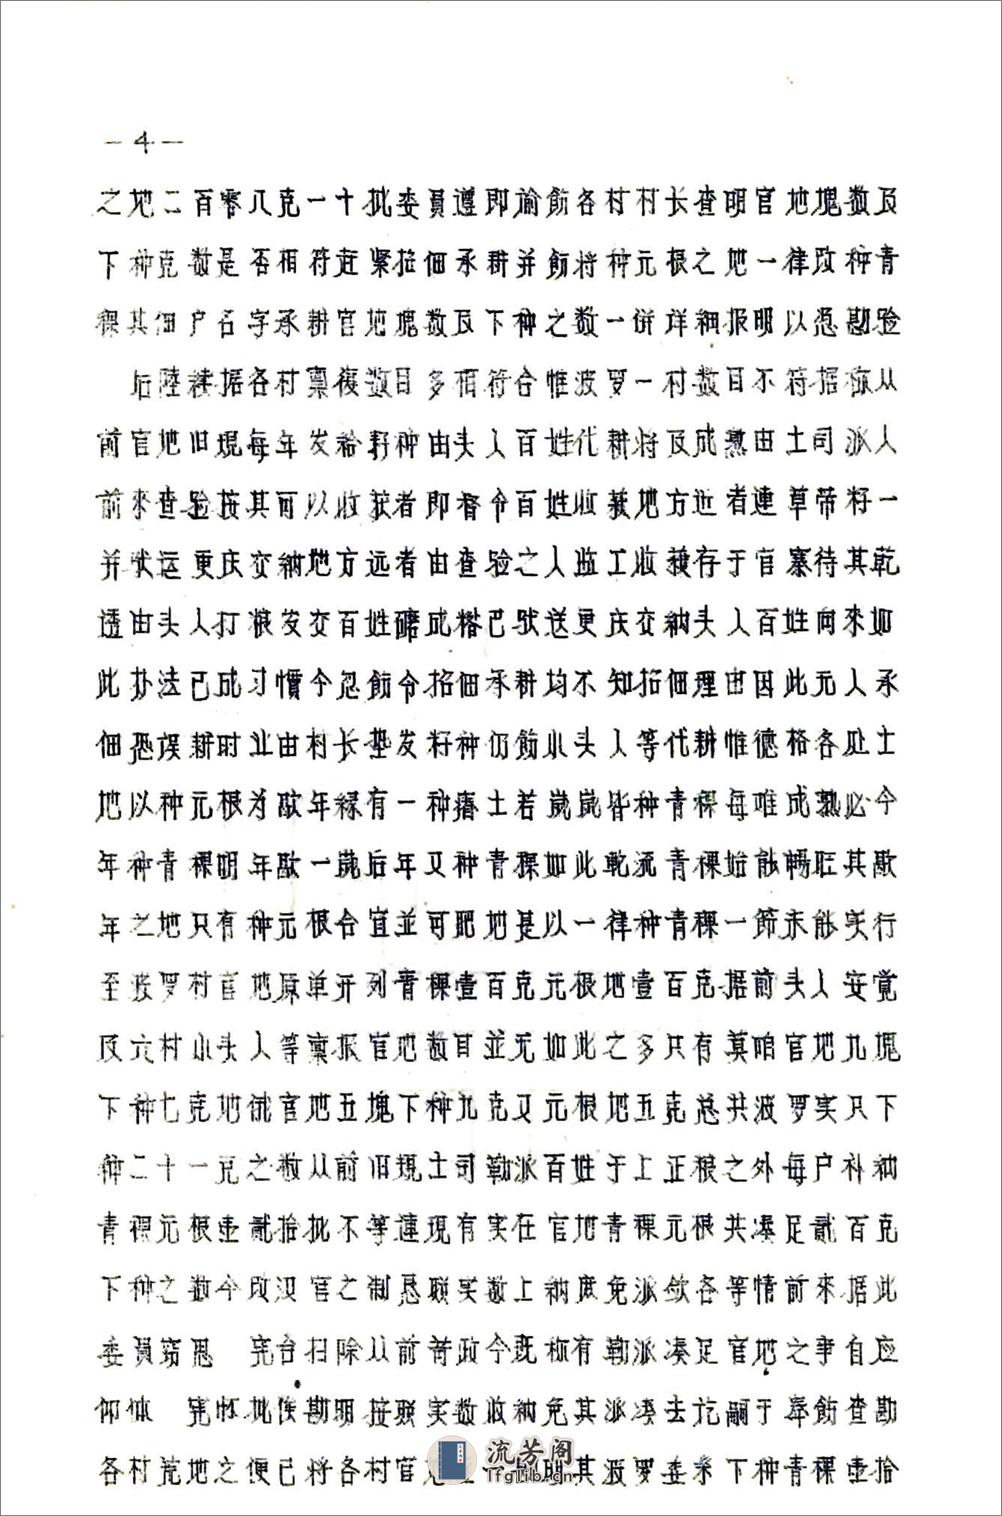 —4—
之地二百零八克一十批委员遵即谕飭各村村长查明官地塊数及
下种克数是否相符赶紧招佃承耕并飭将种元根之地一律改种青
稞其佃户名字承耕官地塊数及下种之数一併详细报明以憑勘验
后陸续据各村禀復数目多相符合惟波罗一村数目不符据称从
前官地旧规每年发给籽种由头人百姓代耕将及成熟由土司派人
前來查验按其可以收获者即督令百姓收获地方近者連草带籽一
并驮运更庆交納地方远者由查验之人监工收获存于官寨待其乾
透由头人打粮发交百姓磨成糌巴驮送更庆交納头人百姓向来如
此办法已成习慣今忽飭令招佃承耕均不知招佃理由因此元人承
佃恐误耕时业由村长垫发籽种仍飭小头人等代耕惟德格各处土
地以种元根为歇年緣有一种瘠土若歲歲皆种青稞每难成熟必今
年种青稞明年歇一歲后年又种青稞如此乾流青稞始能畅旺其歇
年之地只有种元根合宜並可肥地是以一律种青稞一節未能实行
至波罗村官地原单开列青稞壹百克元根地壹百克据前头人安觉
及六村小头人等禀报官地数目並无如此之多只有莫咱官地九塊
下种七克地俄官地五塊下种九克又元根地五克总共波罗实只下
种二十一克之数从前旧规土司勒派百姓于上正粮之外每户补納
青稞元根壹貳拾批不等連现有实在官地青稞元根共凑足貳百克
下种之数今改汉官之制恳联实数上納庶免派敛各等情前来据此
委員窃思 宪台扫除从前苛政今既称有勒派凑足官地之事自应
仰体 宪怀批俟勘明按联实数收納免其派凑去讫嗣于奉飭查勘
各村荒地之便已将各村官地明其波罗委系下种青稞壹拾
流芳阁
Tfglib.cn